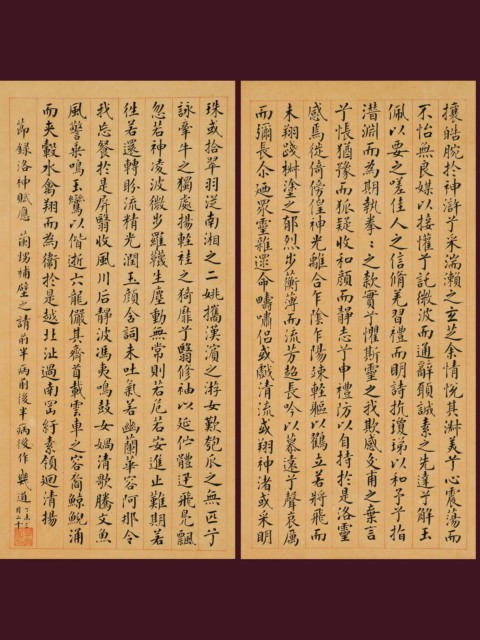 攘皓腕於神滸兮采湍瀨之玄芝余情悅其淋美兮心震蕩而
不怡無良媒以接懽兮託微波而通辭願誠素之先達兮解玉
佩以要之嗟佳人之信脩羌習禮而明詩抗瓊珶以和予兮指
潛淵而為期執拳〻之款實兮懼斯靈之我欺感交甫之棄言
兮悵猶豫而狐疑收和顏而靜志兮申禮防以自持於是洛靈
感焉徙倚傍偟神光離合乍陰乍陽竦輕軀以鶴立若將飛而
未翔踐椒塗之郁烈步蘅薄而流芳超長吟以慕遠兮聲哀厲
而彌長尒迺眾靈雜遝命疇嘯侶或戲清流或翔神渚或采明
珠或拾翠羽從南湘之二姚攜漢濱之游女歎匏瓜之無匹兮
詠牽牛之獨處揚輕袿之猗靡兮翳修袖以延佇體迅飛鳧飄
忽若神凌波微步羅韈生塵動無常則若危若安進止難期若
往若還轉眄流精光潤玉顏含詞未吐氣若幽蘭華容阿那令
我忘餐於是屏翳收風川后靜波馮夷鳴鼓女媧清歌騰文魚
風警乘鳴玉鸞以偕逝六龍儼其齊首載雲車之容裔鯨鯢涌
而夾轂水禽翔而為衛於是越北沚過南岡紆素領迴清揚
節錄洛神賦應 蘭揚補壁之請前半病前後半病後作 幾道